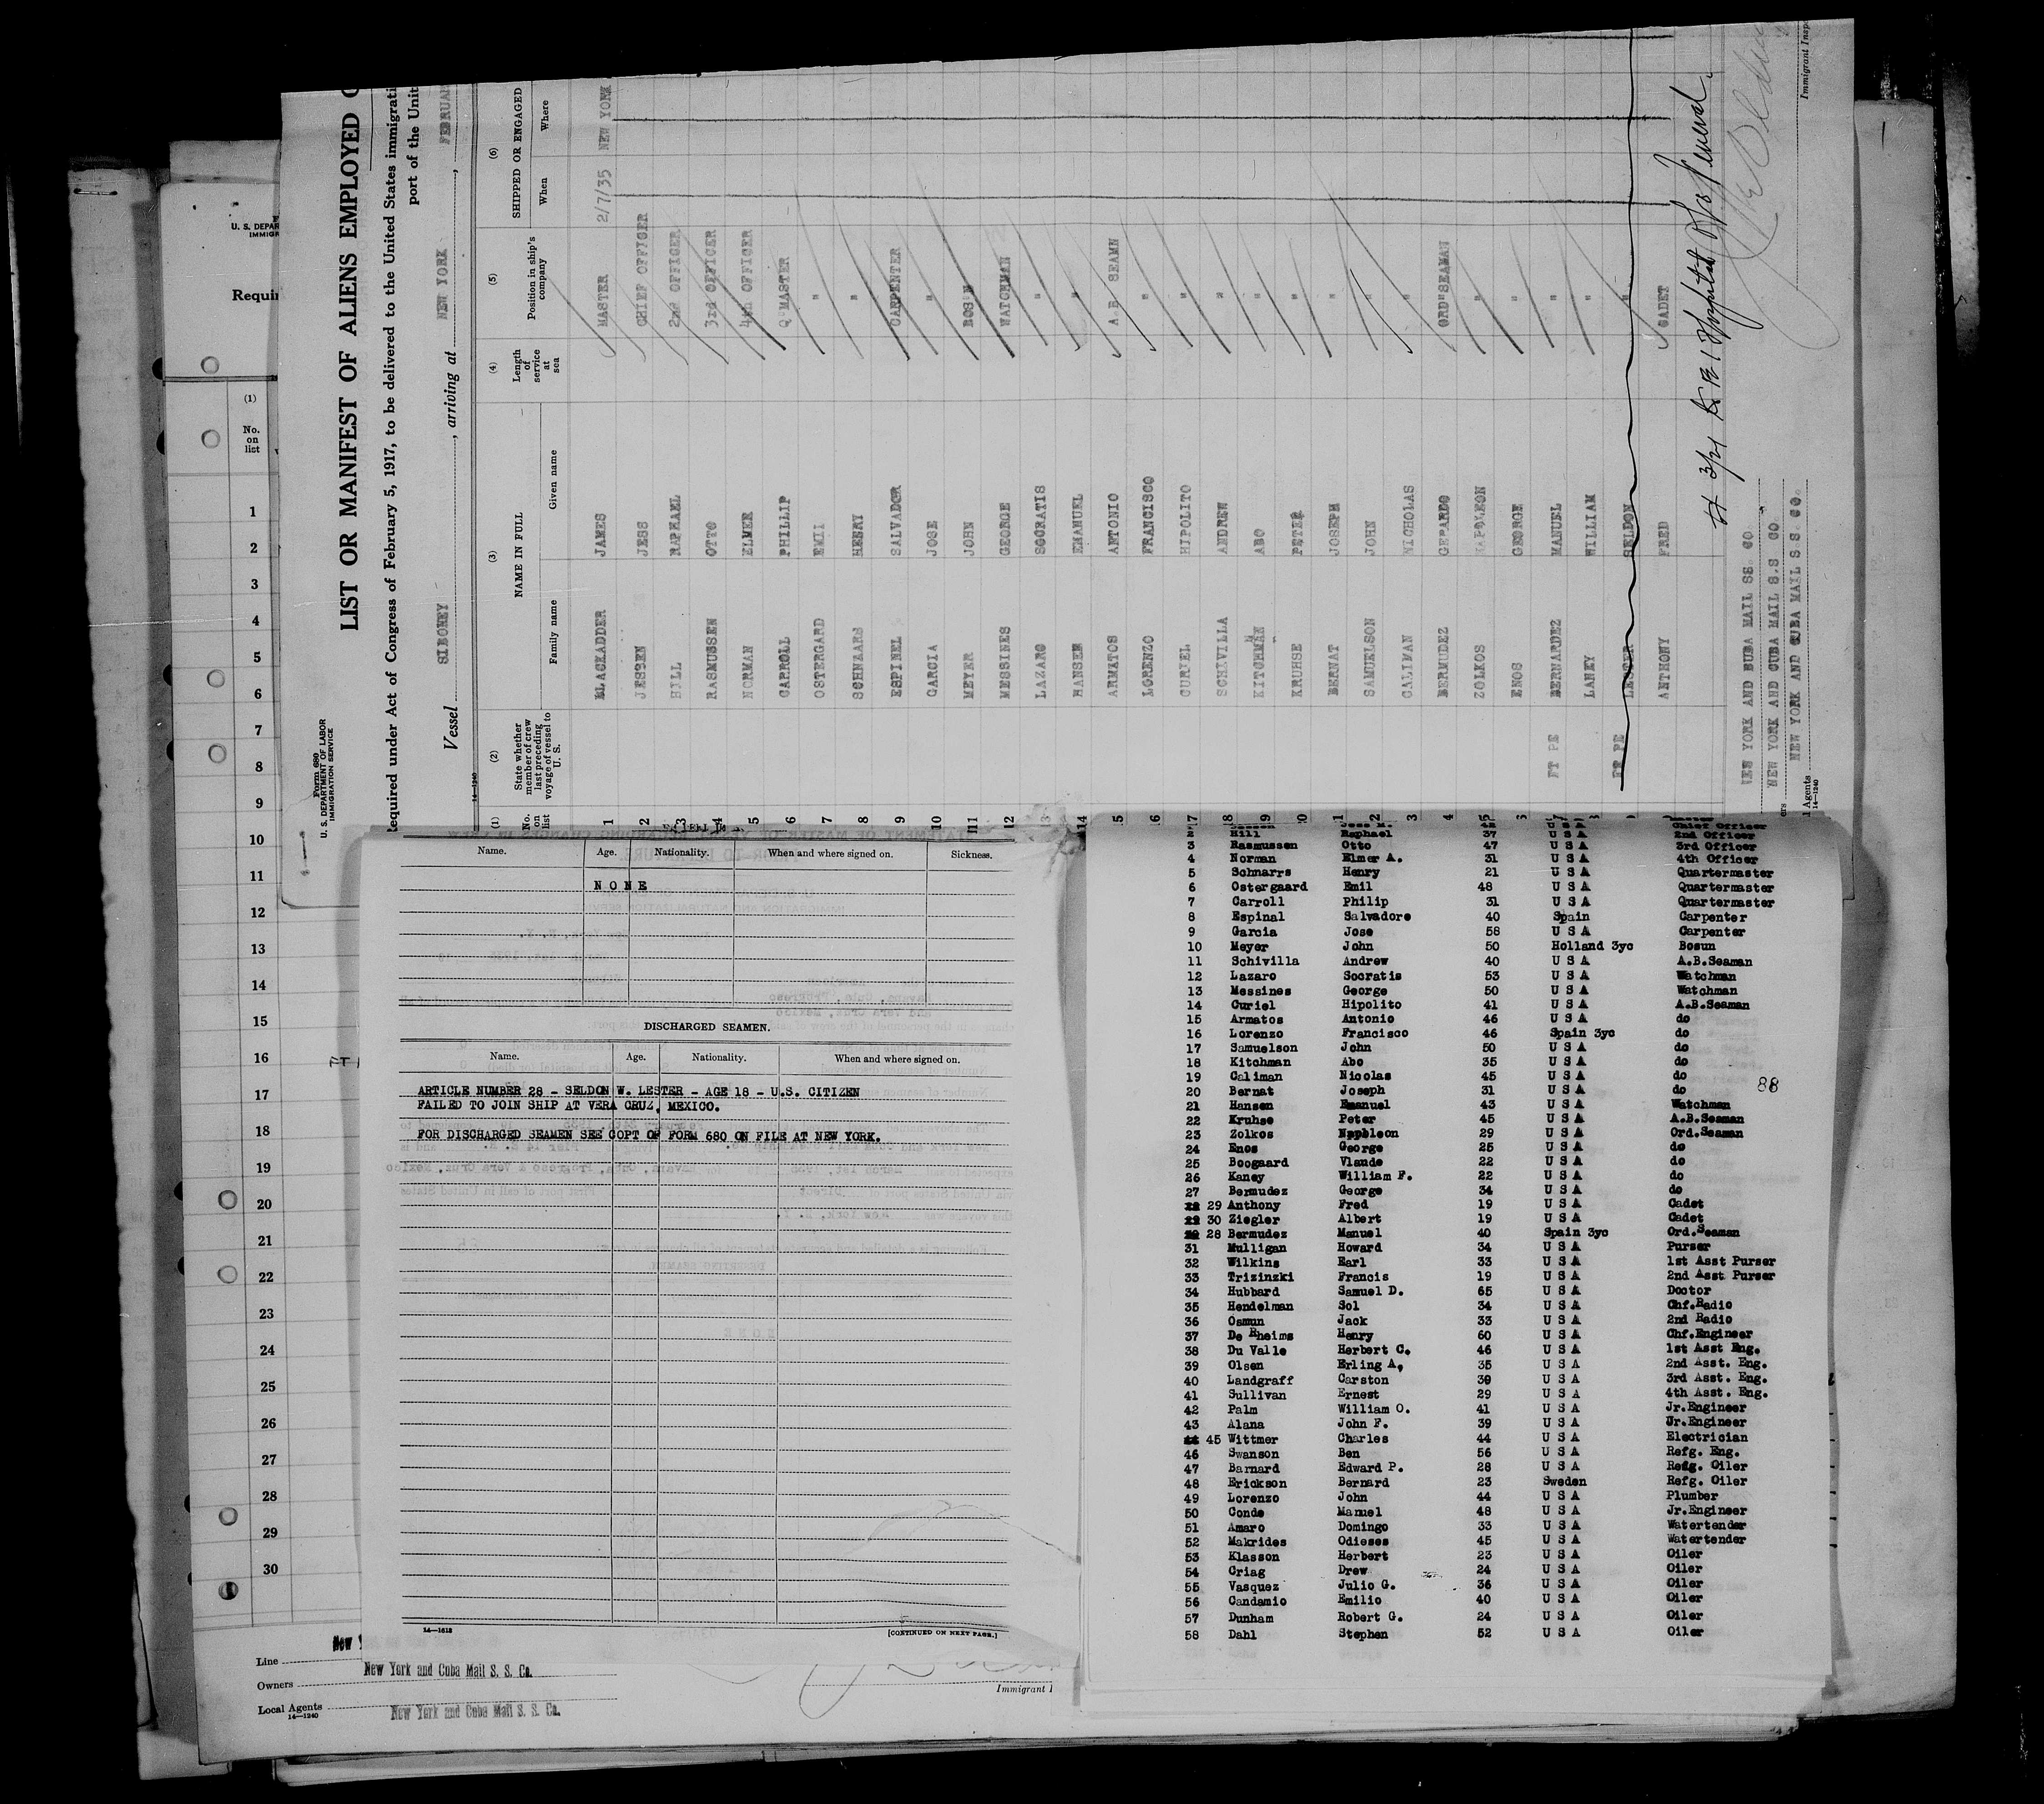 LIST OR MANIFEST OF ALIENS EMPLOYED
Form 680
U. S. DEPARTMENT OF LABOR
IMMIGRATION SERVICE
Required under Act of Congress of February 5, 1917, to be delivered to the United States
port of the
Vessel SIBONEY, arriving at NEW YORK
14-1240
(1) No. on list
(2) State whether member of crew last preceding voyage of vessel to U. S.
(3) NAME IN FULL Family name Given name
(4) Length of service at sea
(5) Position in ship's company
(6) SHIPPED OR ENGAGED When Where
1 BLACKADDER JAMES MASTER 2/7/35 NEW YORK
2 JESSEN JESS CHIEF OFFICER
3 HILL RAPHAEL 2nd OFFICER
4 RASMUSSEN OTTO 3rd OFFICER
5 NORMAN ELMER 4th OFFICER
6 CARROLL PHILLIP Q'MASTER
7 OSTERGARD EMIL "
8 SCHNAARS HENRY "
9 ESPINEL SALVADOR CARPENTER
10 GARCIA JOSE "
11 MEYER JOHN BOS'N
12 MESSINES GEORGE WATCHMAN
LAZARO SOCRATIS "
HANSEN EMANUEL "
ARMATOS ANTONIO A.B. SEAMN
LORENZO FRANCISCO "
CURIEL HIPOLITO "
SCHIVILLA ANDREW "
KITCHMAN ABO "
KRUHSE PETER "
BERNAT JOSEPH "
SAMUELSON JOHN "
CALIMAN NICHOLAS "
BERMUDEZ GERARDO ORD"SEAMAN
ZOLKOS NAPOLEON "
ENOS GEORGE "
PT PE BERNARDEZ MANUEL "
LANEY WILLIAM "
LESTER SELDON "
ANTHONY FRED CADET
NEW YORK AND CUBA MAIL SS. CO
NEW YORK AND CUBA MAIL S.S CO
NEW YORK AND CUBA MAIL S.S. CO.
Agents
14-1240
Immigrant Insp
U. S. DEPAR
IMMIG
Requir
(1)
No.
on
list
1
2
3
4
5
6
7
8
9
10
11
12
13
14
15
16
17
18
19
20
21
22
23
24
25
26
27
28
29
30
Name. Age. Nationality. When and where signed on. Sickness.
NONE
DISCHARGED SEAMEN.
Name. Age. Nationality. When and where signed on.
ARTICLE NUMBER 28 - SELDON W. LESTER - AGE 18 - U.S. CITIZEN
FAILED TO JOIN SHIP AT VERA CRUZ, MEXICO.
FOR DISCHARGED SEAMEN SEE COPT OF FORM 680 ON FILE AT NEW YORK.
14-1613
[CONTINUED ON NEXT PAGE.]
Line
New York and Cuba Mail S. S. Co.
Owners
Local Agents New York and Cuba Mail S. S. Co.
14-1240
Immigrant I
Chief Officer
2 Hill Raphael 37 U S A 2nd Officer
3 Rasmussen Otto 47 U S A 3rd Officer
4 Norman Elmer A. 31 U S A 4th Officer
5 Schnarrs Henry 21 U S A Quartermaster
6 Ostergaard Emil 48 U S A Quartermaster
7 Carroll Philip 31 U S A Quartermaster
8 Espinal Salvadore 40 Spain Carpenter
9 Garcia Jose 58 U S A Carpenter
10 Meyer John 50 Holland 3yc Bosun
11 Schivilla Andrew 40 U S A A.B.Seaman
12 Lazaro Socratis 53 U S A Watchman
13 Messines George 50 U S A Watchman
14 Curiel Hipolito 41 U S A A.B.Seaman
15 Armatos Antonio 46 U S A do
16 Lorenzo Francisco 46 Spain 3yc do
17 Samuelson John 50 U S A do
18 Kitchman Abo 35 U S A do
19 Caliman Nicolas 45 U S A do
20 Bernat Joseph 31 U S A do
88
21 Hansen Emanuel 43 U S A Watchman
22 Kruhse Peter 45 U S A A.B.Seaman
23 Zolkos Nappleon 29 U S A Ord.Seaman
24 Enos George 25 U S A do
25 Boogaard Vlande 22 U S A do
26 Kaney William F. 22 U S A do
27 Bermudez George 34 U S A do
29 Anthony Fred 19 U S A Cadet
30 Ziegler Albert 19 U S A Cadet
28 Bermudez Manuel 40 Spain 3yc Ord.Seaman
31 Mulligan Howard 34 U S A Purser
32 Wilkins Earl 33 U S A 1st Asst Purser
33 Trizinzki Francis 19 U S A 2nd Asst Purser
34 Hubbard Samuel D. 65 U S A Doctor
35 Hendelman Sol 34 U S A Chf.Radio
36 Osmun Jack 33 U S A 2nd Radio
37 De Rheims Henry 60 U S A Chf.Engineer
38 Du Valle Herbert C. 46 U S A 1st Asst Eng.
39 Olsen Erling A, 35 U S A 2nd Asst. Eng.
40 Landgraff Carston 39 U S A 3rd Asst. Eng.
41 Sullivan Ernest 29 U S A 4th Asst. Eng.
42 Palm William O. 41 U S A Jr.Engineer
43 Alana John F. 39 U S A Jr.Engineer
45 Wittmer Charles 44 U S A Electrician
46 Swanson Ben 56 U S A Refg. Eng.
47 Barnard Edward P. 28 U S A Refg. Oiler
48 Erickson Bernard 23 Sweden Refg. Oiler
49 Lorenzo John 44 U S A Plumber
50 Conde Manuel 48 U S A Jr.Engineer
51 Amaro Domingo 33 U S A Watertender
52 Makrides Odieses 45 U S A Watertender
53 Klasson Herbert 23 U S A Oiler
54 Criag Drew 24 U S A Oiler
55 Vasquez Julio G. 36 U S A Oiler
56 Candamio Emilio 40 U S A Oiler
57 Dunham Robert G. 24 U S A Oiler
58 Dahl Stephen 52 U S A Oiler